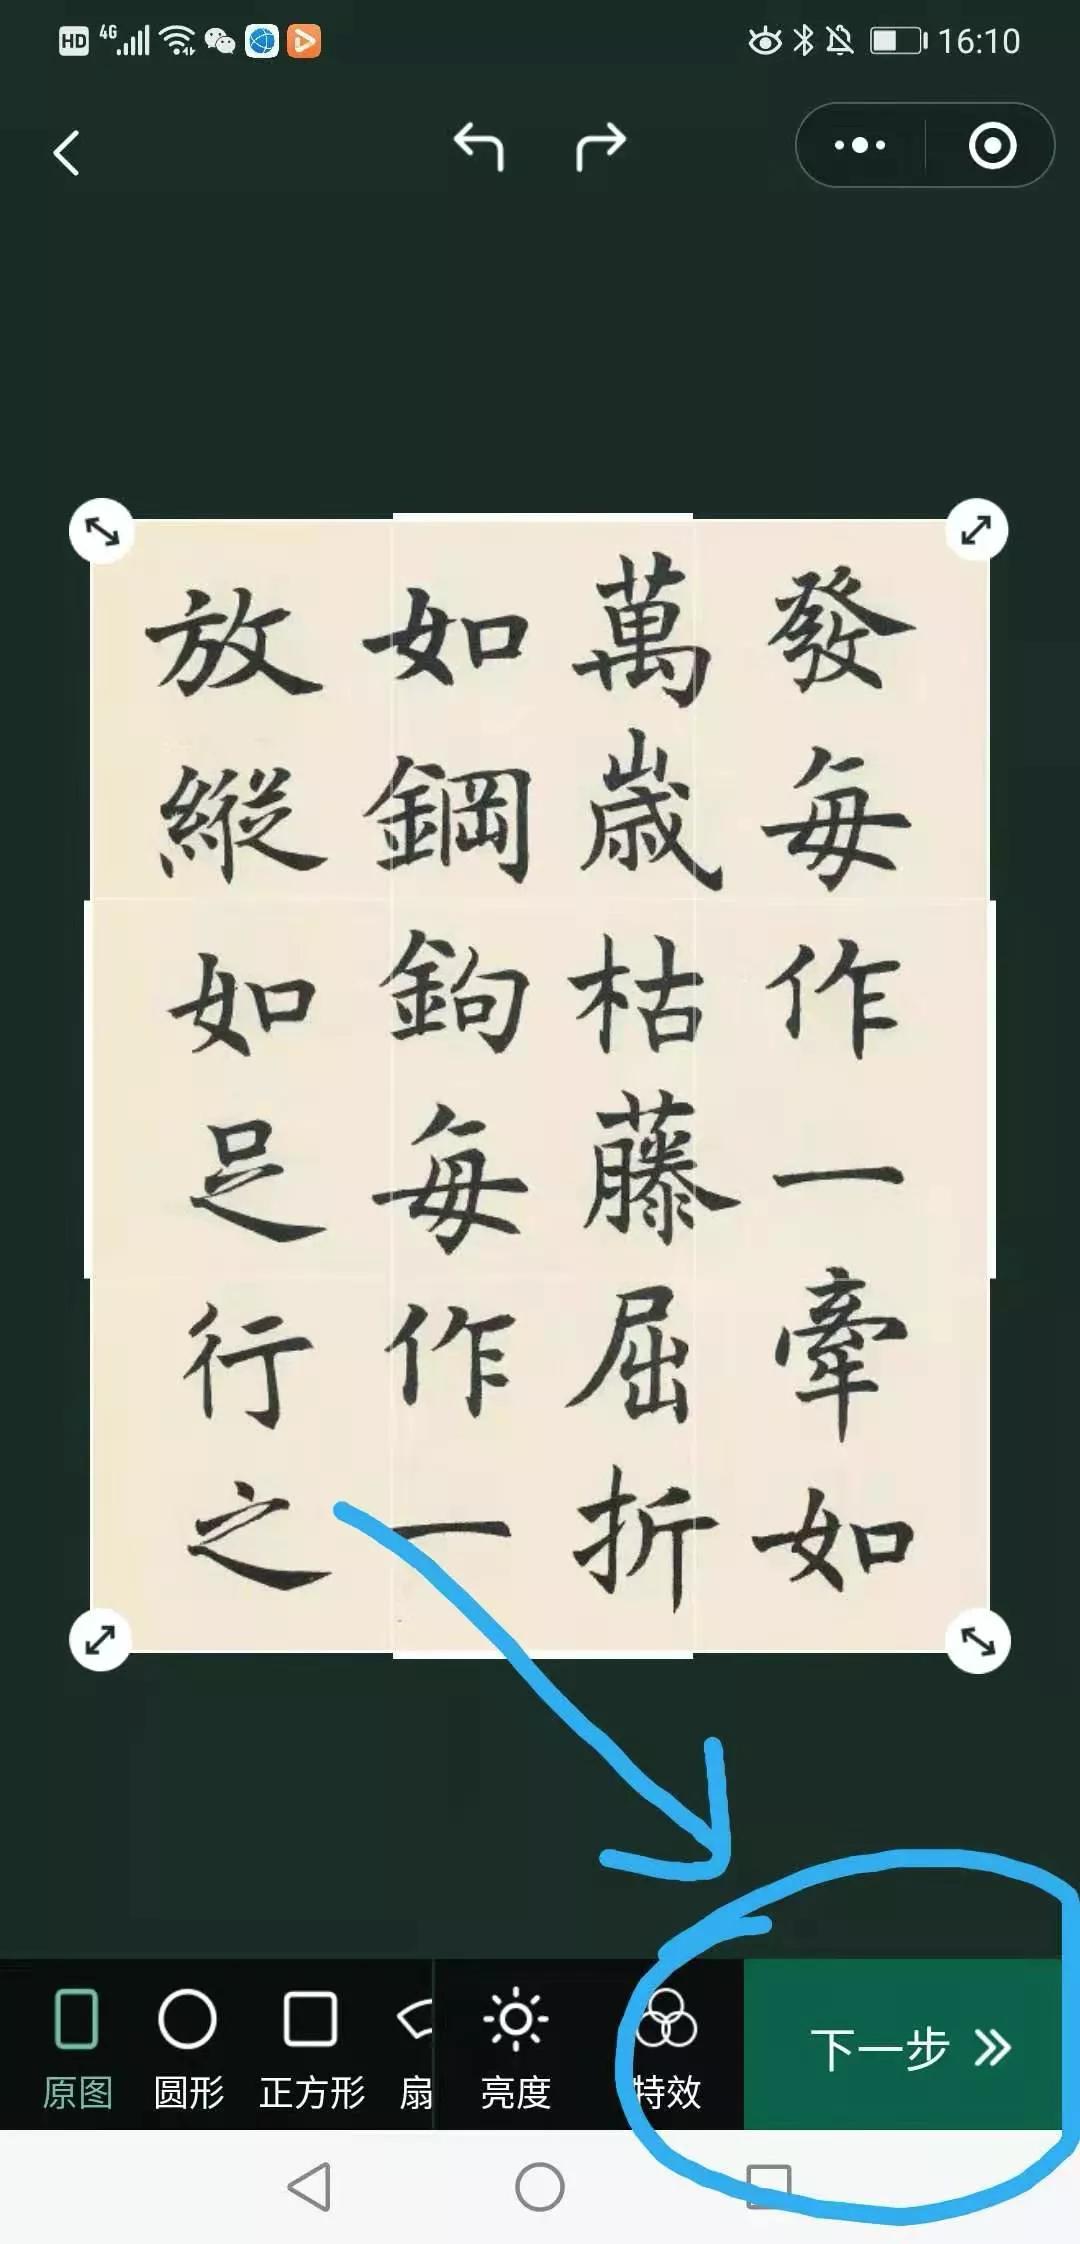 HD 4G 16:10
發每作一牽如
萬歲枯藤屈折
如鋼鉤每作一
放縱如足行之
原图 圆形 正方形 扇 亮度 特效 下一步